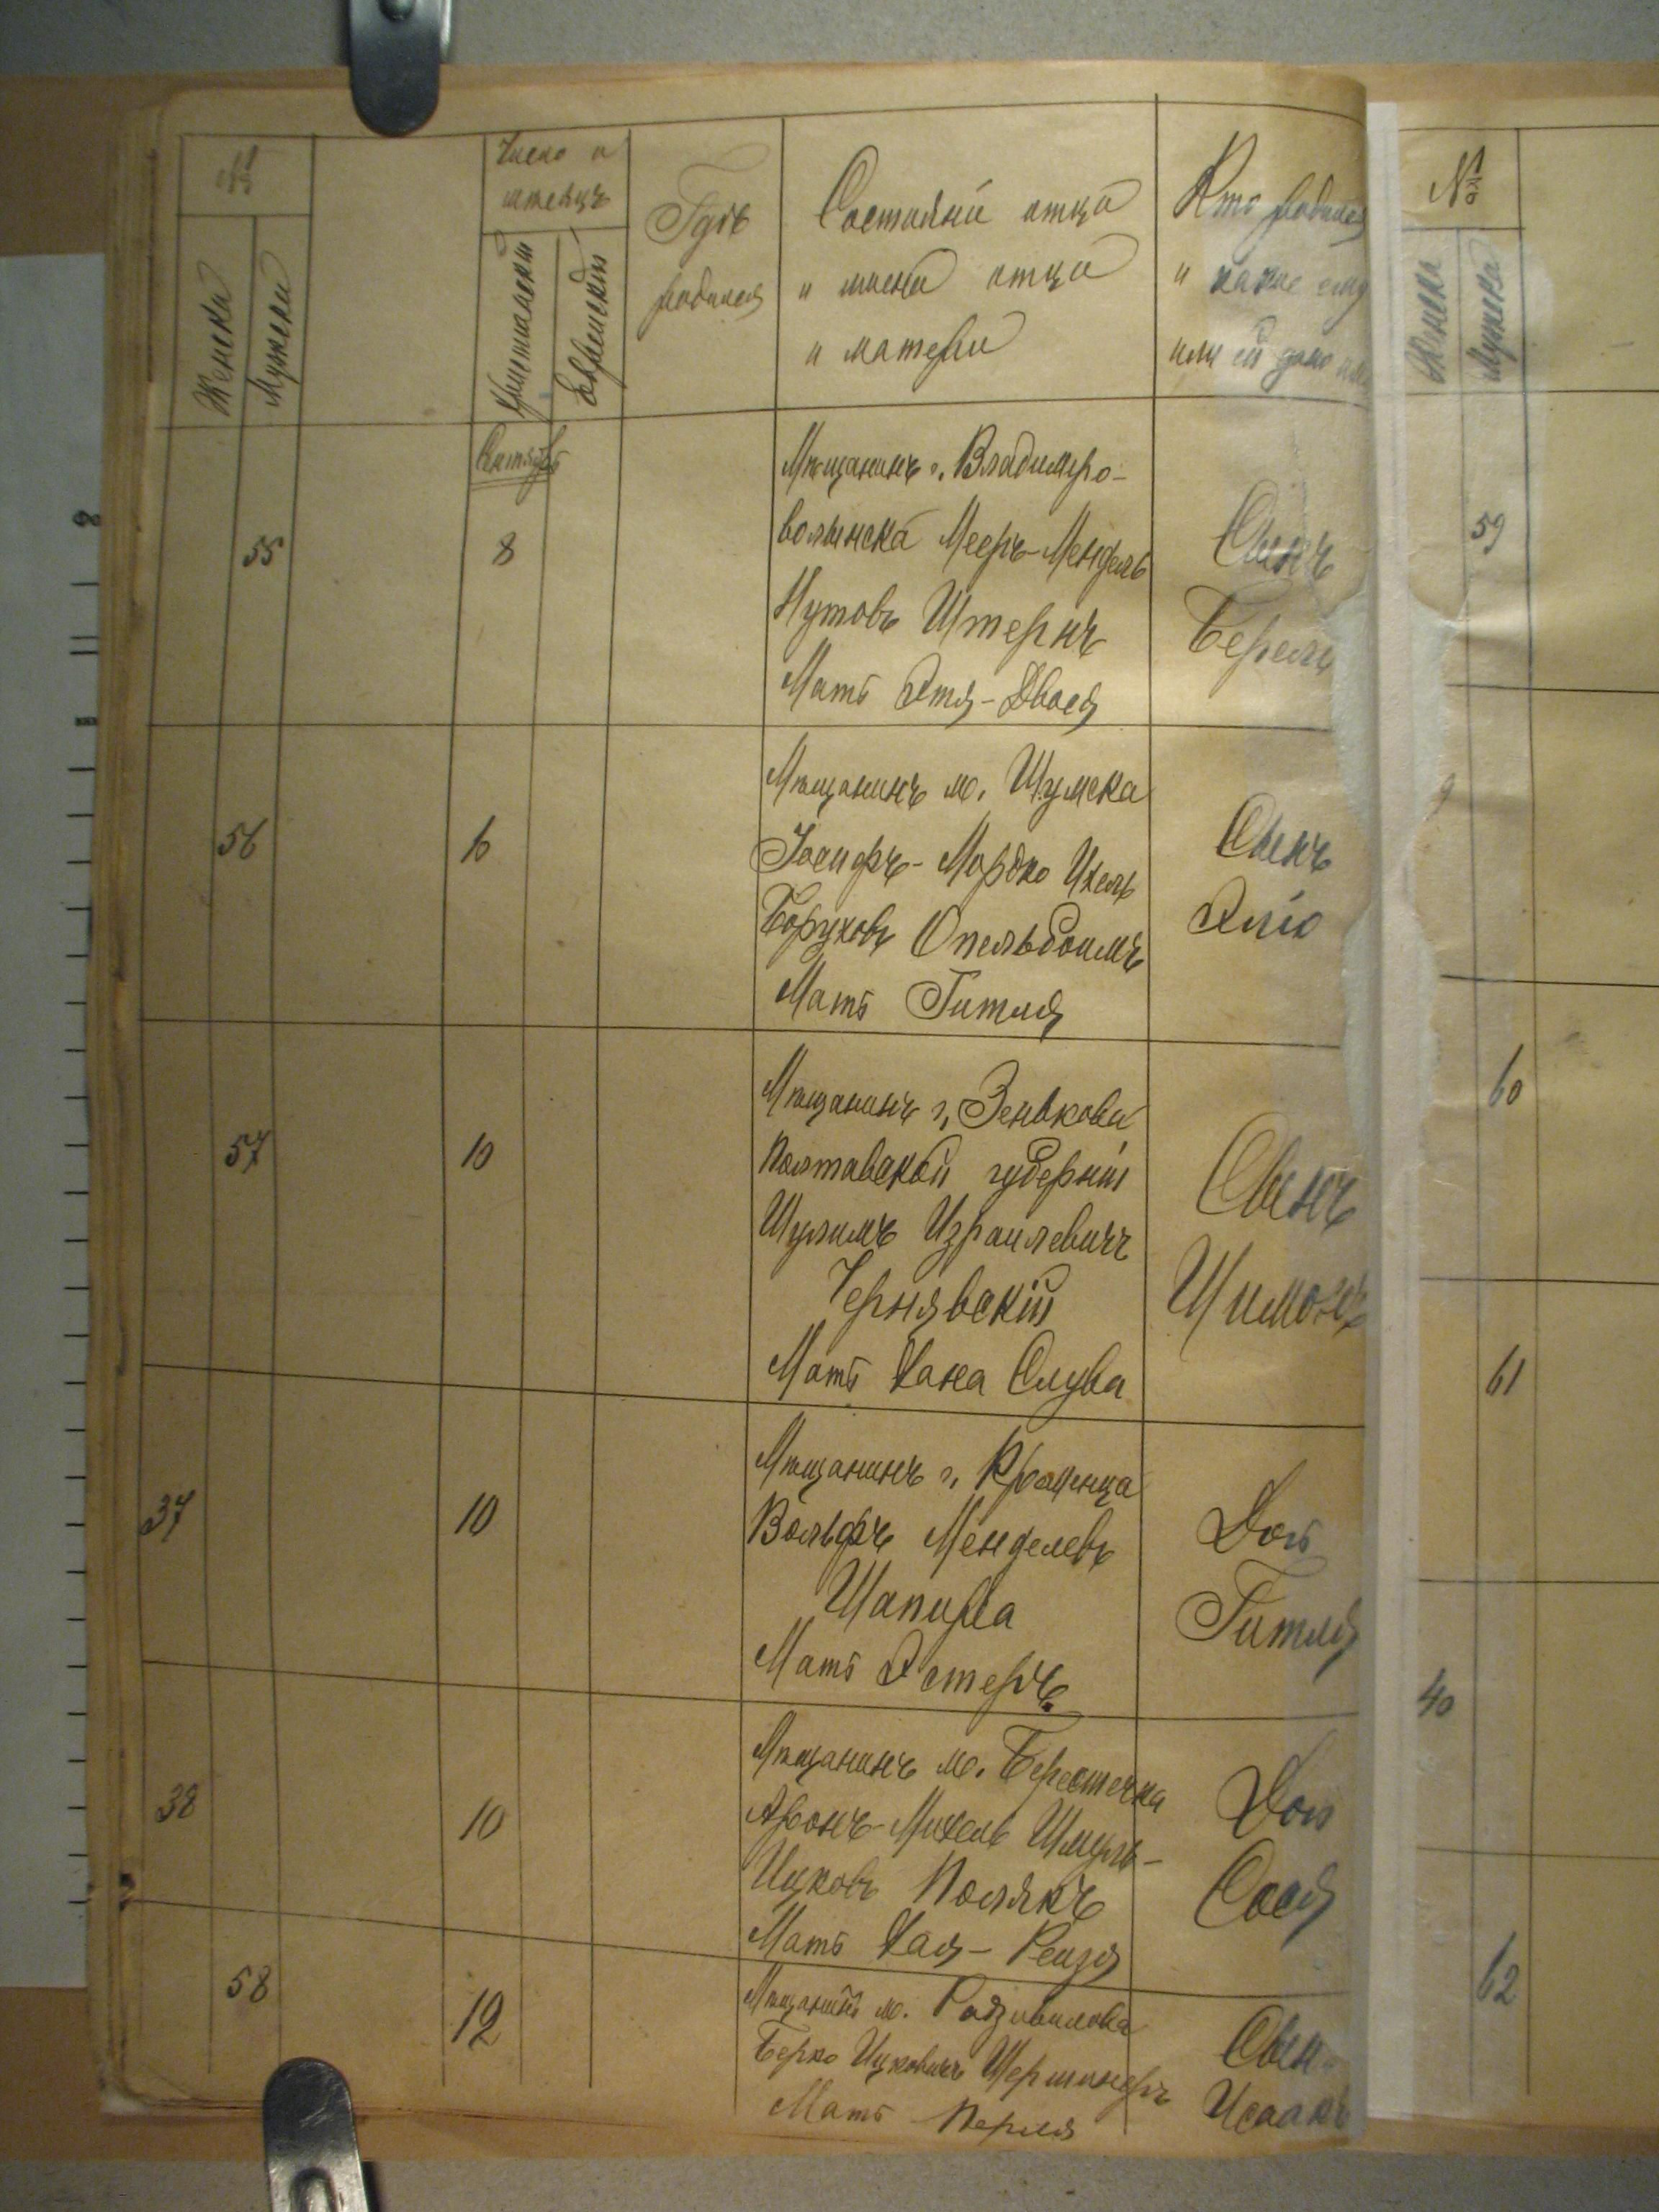 №
Женска
Мужска
Число и
мѣсяцъ
Христіански
Еврейскій
Гдѣ
родился
Состояніе отца
и имена отца
и матери
Кто родился
и какое ему
или ей дано имя
№
Женска
Мужска
Сентябрь
55
8
Мѣщанинъ г. Владимиро-
волынска Мееръ-Мендель
Нутовъ Штернъ
Мать Этя-Двося
Сынъ
Берель
59
56
6
Мѣщанинъ м. Шумска
Іосифъ-Мордко Ихель
Боруховъ Опельбоимъ
Мать Гитля
Сынъ
Эліо
57
10
Мѣщанинъ г. Зенькова
Полтавской губерніи
Шулимъ Израилевичъ
Чернявскій
Мать Хана Слува
Сынъ
Шимонъ
60
61
37
10
Мѣщанинъ г. Кременца
Вольфъ Менделевъ
Шапира
Мать Эстеръ
Дочь
Гитля
40
38
10
Мѣщанинъ м. Берестечка
Аронъ-Михель Шмуль-
Ицковъ Полякъ
Мать Хая-Рейзя
Дочь
Сося
58
12
Мѣщанинъ м. Радзивилова
Берко Ицковичъ
Мать Перля
Сынъ
Исаакъ
62